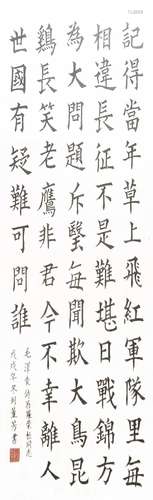 記得當年草上飛紅軍隊里每
相違長征不是難堪日戰錦方
為大問題斥每聞欺大鳥昆
鷄長笑老鷹非君今不幸離人
世國有疑難可問誰
毛澤東詩吊羅榮桓同志
戊戌冬劉書